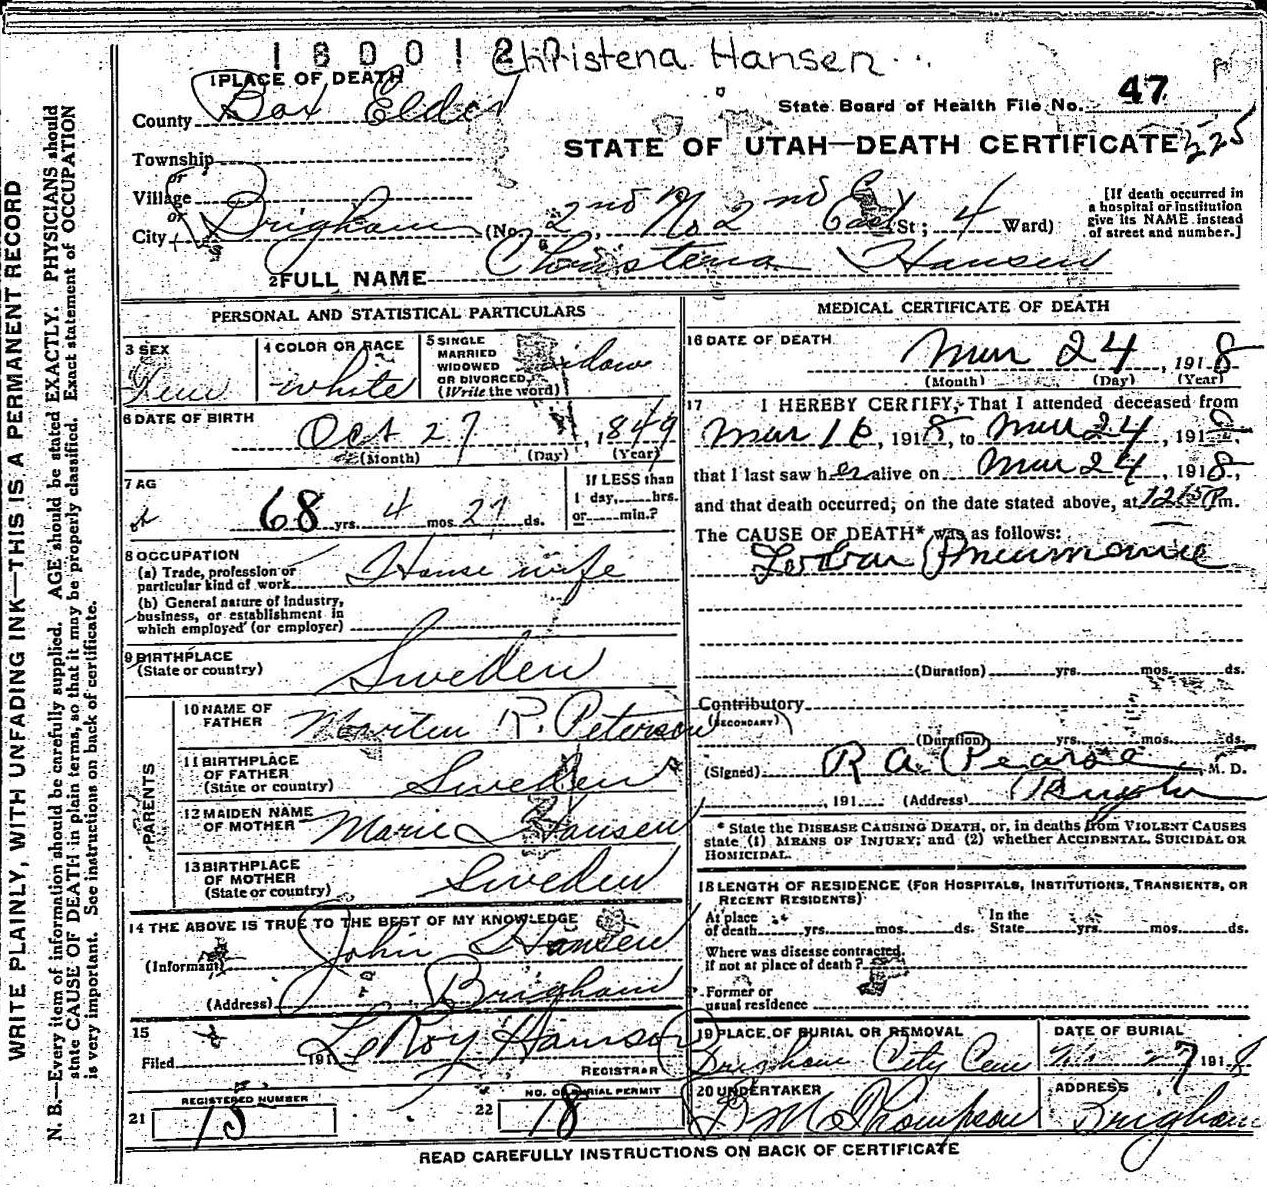 180012 Christena Hansen
1 PLACE OF DEATH
County Box Elder
State Board of Health File No. 47
STATE OF UTAH—DEATH CERTIFICATE 225
Township
or
Village
or
City Brigham (No. 2nd No 2nd East St; 4 Ward)
[If death occurred in
a hospital or institution
give its NAME instead
of street and number.]
2 FULL NAME Christena Hansen
PERSONAL AND STATISTICAL PARTICULARS
3 SEX Fem
4 COLOR OR RACE white
5 SINGLE
MARRIED
WIDOWED
OR DIVORCED
(Write the word)
Widow
6 DATE OF BIRTH
Oct 27, 1849
(Month) (Day) (Year)
7 AGE
68 yrs. 4 mos. 27 ds.
If LESS than
1 day, hrs.
or min.?
8 OCCUPATION
(a) Trade, profession or
particular kind of work House wife
(b) General nature of Industry,
business, or establishment in
which employed (or employer)
9 BIRTHPLACE
(State or country) Sweden
PARENTS
10 NAME OF
FATHER Morten P. Peterson
11 BIRTHPLACE
OF FATHER
(State or country) Sweden
12 MAIDEN NAME
OF MOTHER Marie Hansen
13 BIRTHPLACE
OF MOTHER
(State or country) Sweden
14 THE ABOVE IS TRUE TO THE BEST OF MY KNOWLEDGE
(Informant) John Hansen
(Address) Brigham
15
Filed 191 LeRoy Hanson
REGISTRAR
21 REGISTERED NUMBER 15
22 NO. OF BURIAL PERMIT 18
MEDICAL CERTIFICATE OF DEATH
16 DATE OF DEATH
Mar 24, 1918
(Month) (Day) (Year)
17 I HEREBY CERTIFY, That I attended deceased from
Mar 16, 1918, to Mar 24, 1918,
that I last saw her alive on Mar 24, 1918,
and that death occurred, on the date stated above, at 12 15 P m.
The CAUSE OF DEATH* was as follows:
Lobar Pneumonia
(Duration) yrs. mos. ds.
Contributory
(SECONDARY)
(Duration) yrs. mos. ds.
(Signed) R A Pearse, M. D.
, 191 (Address) Brigham
* State the DISEASE CAUSING DEATH, or, in deaths from VIOLENT CAUSES
state (1) MEANS OF INJURY; and (2) whether ACCIDENTAL, SUICIDAL OR
HOMICIDAL.
18 LENGTH OF RESIDENCE (FOR HOSPITALS, INSTITUTIONS, TRANSIENTS, OR
RECENT RESIDENTS)
At place
of death yrs. mos. ds.
In the
State yrs. mos. ds.
Where was disease contracted,
if not at place of death?
Former or
usual residence
19 PLACE OF BURIAL OR REMOVAL
Brigham City Cem
DATE OF BURIAL
27 1918
20 UNDERTAKER
P M Thompson
ADDRESS
Brigham
READ CAREFULLY INSTRUCTIONS ON BACK OF CERTIFICATE
WRITE PLAINLY, WITH UNFADING INK—THIS IS A PERMANENT RECORD
N. B.—Every item of information should be carefully supplied. AGE should be stated EXACTLY. PHYSICIANS should
state CAUSE OF DEATH in plain terms, so that it may be properly classified. Exact statement of OCCUPATION
is very important. See instructions on back of certificate.